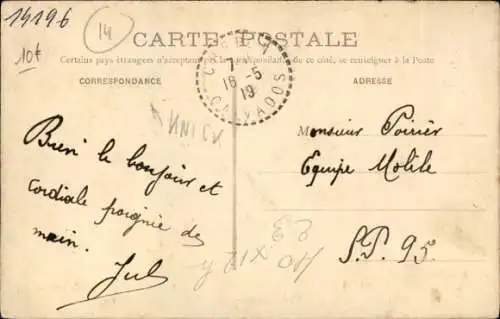 14196
14
10€
CARTE POSTALE
Certains pays étrangers n'acceptent pas la correspondance de ce côté, se renseigner à la Poste
CORRESPONDANCE
ADRESSE
7
16-5
19
CALVADOS
KNICK
Bien le bonjour et
Cordiale poignée de
main.
Jul
Monsieur Poirier
Equipe Mobile
S.P. 95